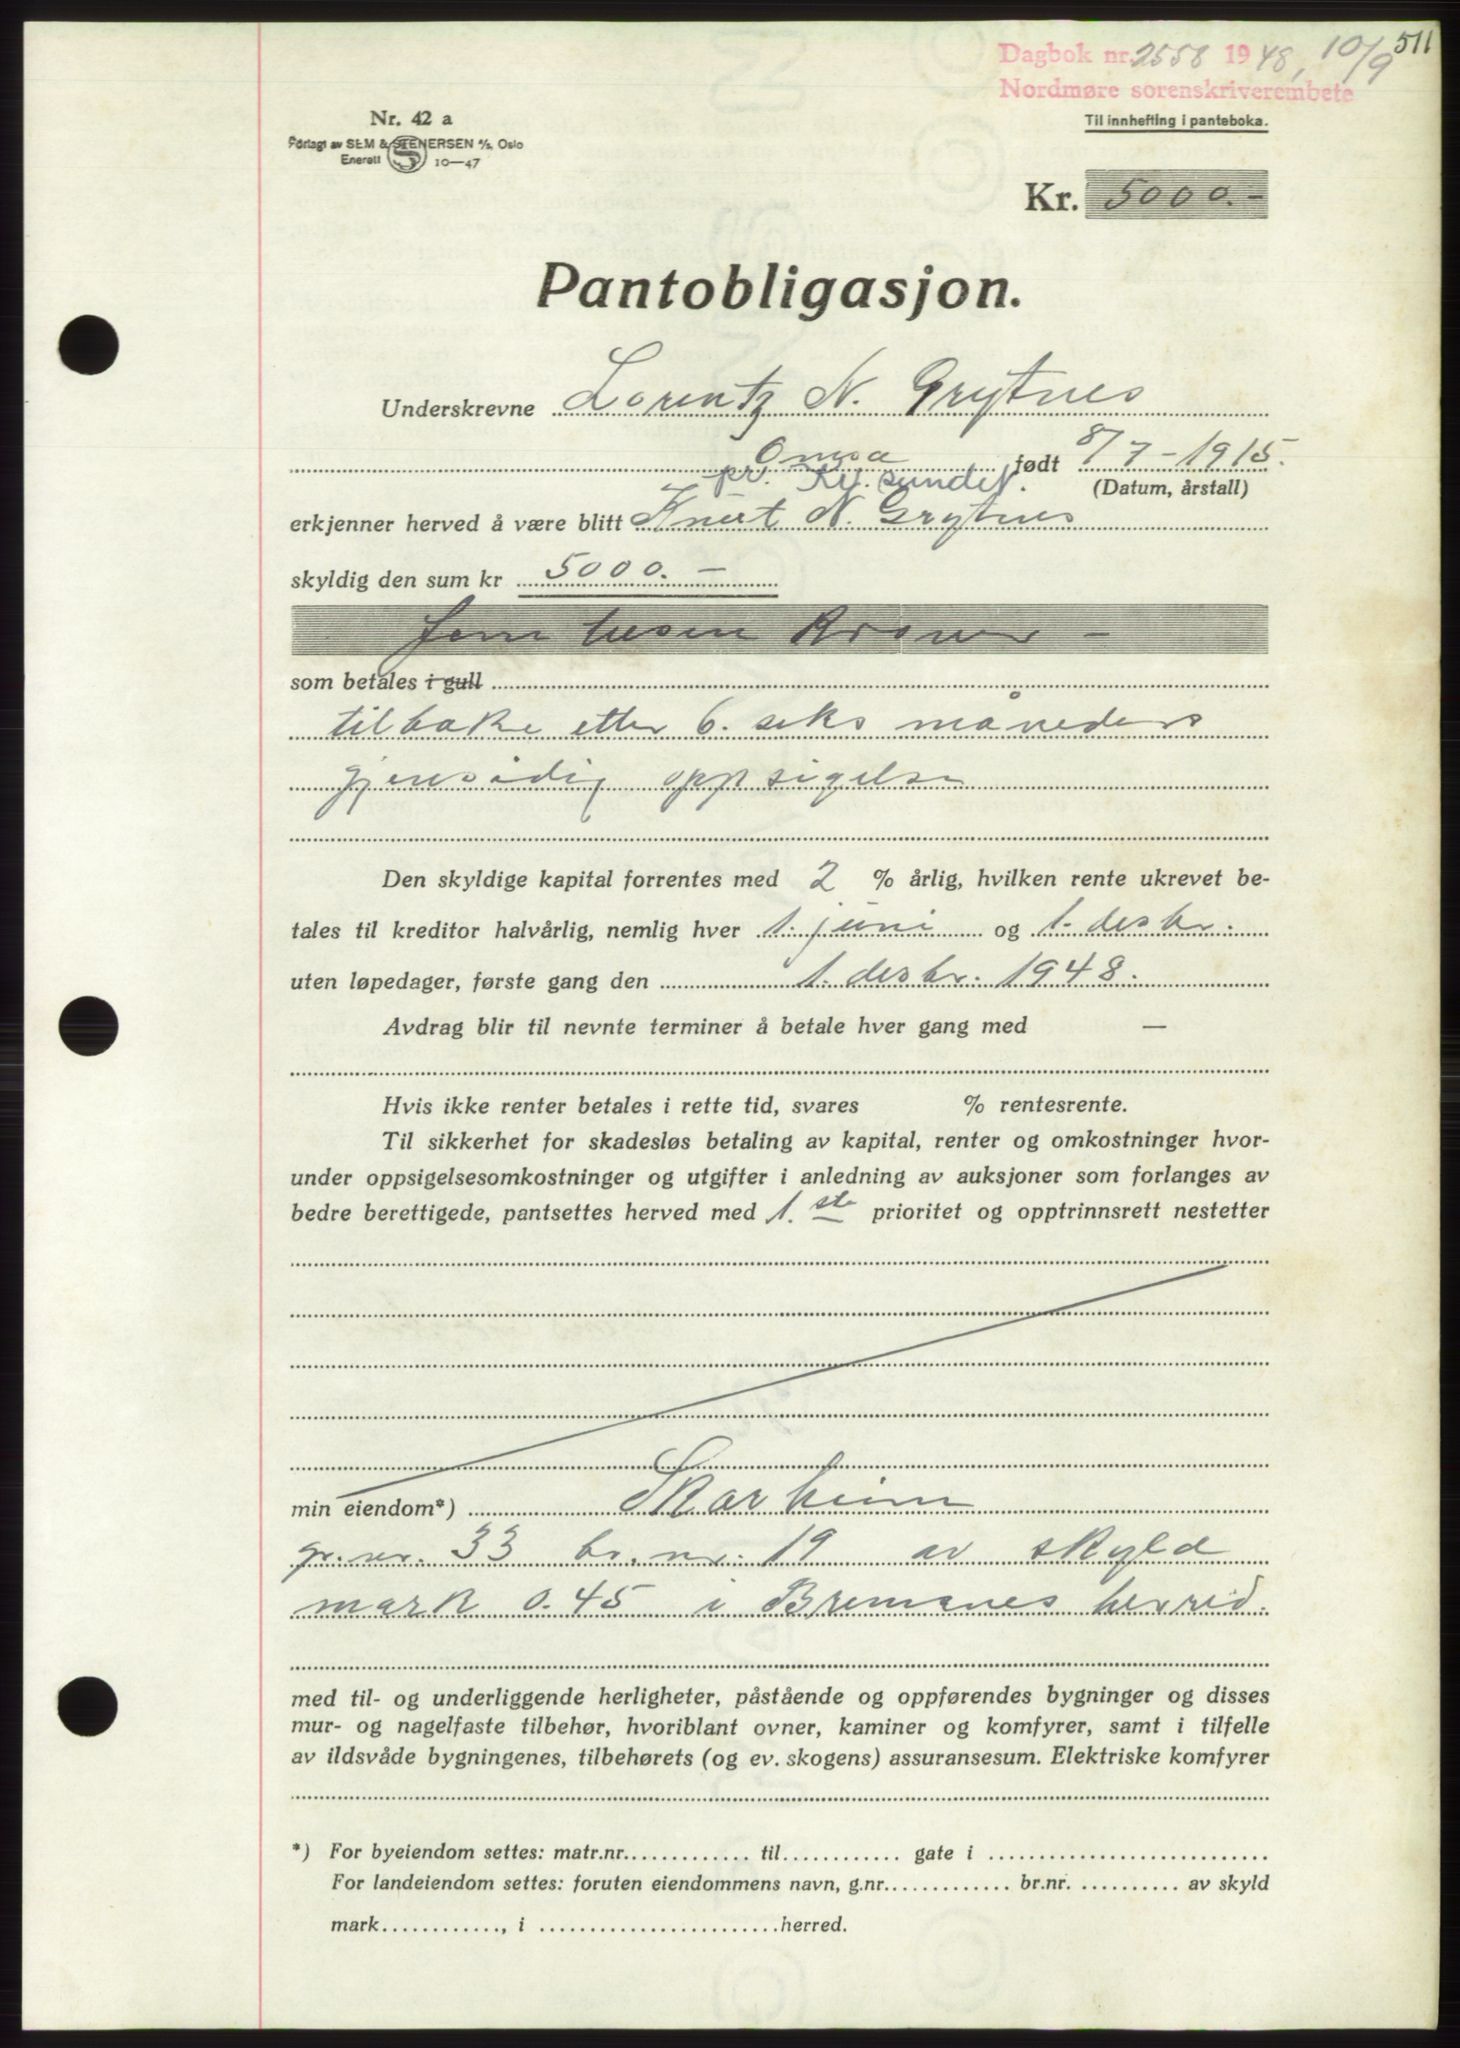 511
Dagbok nr. 2558 1948, 10/9
Nordmøre sorenskriverembete
Nr. 42 a
Forlagt av SEM & STENERSEN A/S, Oslo
Enerett S 10—47
Til innhefting i panteboka.
Kr. 5000.-
Pantobligasjon.
Underskrevne Lorentz N. Grytnes
Omsa født 8/7-1915.
pr. Kr.sundet. (Datum, årstall)
erkjenner herved å være blitt Knut N. Grytnes
skyldig den sum kr 5000.-
fem tusen kroner -
som betales i gull
tilbake etter 6. seks måneders
gjensidig oppsigelse
Den skyldige kapital forrentes med 2 % årlig, hvilken rente ukrevet be-
tales til kreditor halvårlig, nemlig hver 1. juni og 1. desbr.
uten løpedager, første gang den 1. desbr. 1948.
Avdrag blir til nevnte terminer å betale hver gang med —
Hvis ikke renter betales i rette tid, svares % rentesrente.
Til sikkerhet for skadesløs betaling av kapital, renter og omkostninger hvor-
under oppsigelsesomkostninger og utgifter i anledning av auksjoner som forlanges av
bedre berettigede, pantsettes herved med 1. ste prioritet og opptrinnsrett nestetter
min eiendom*) Skarheim
gr.nr. 33 br.nr. 19 av skyld
mark 0.45 i Bremsnes herred.
med til- og underliggende herligheter, påstående og oppførendes bygninger og disses
mur- og nagelfaste tilbehør, hvoriblant ovner, kaminer og komfyrer, samt i tilfelle
av ildsvåde bygningenes, tilbehørets (og ev. skogens) assuransesum. Elektriske komfyrer
*) For byeiendom settes: matr.nr. til gate i
For landeiendom settes: foruten eiendommens navn, g.nr. br.nr. av skyld
mark , i herred.